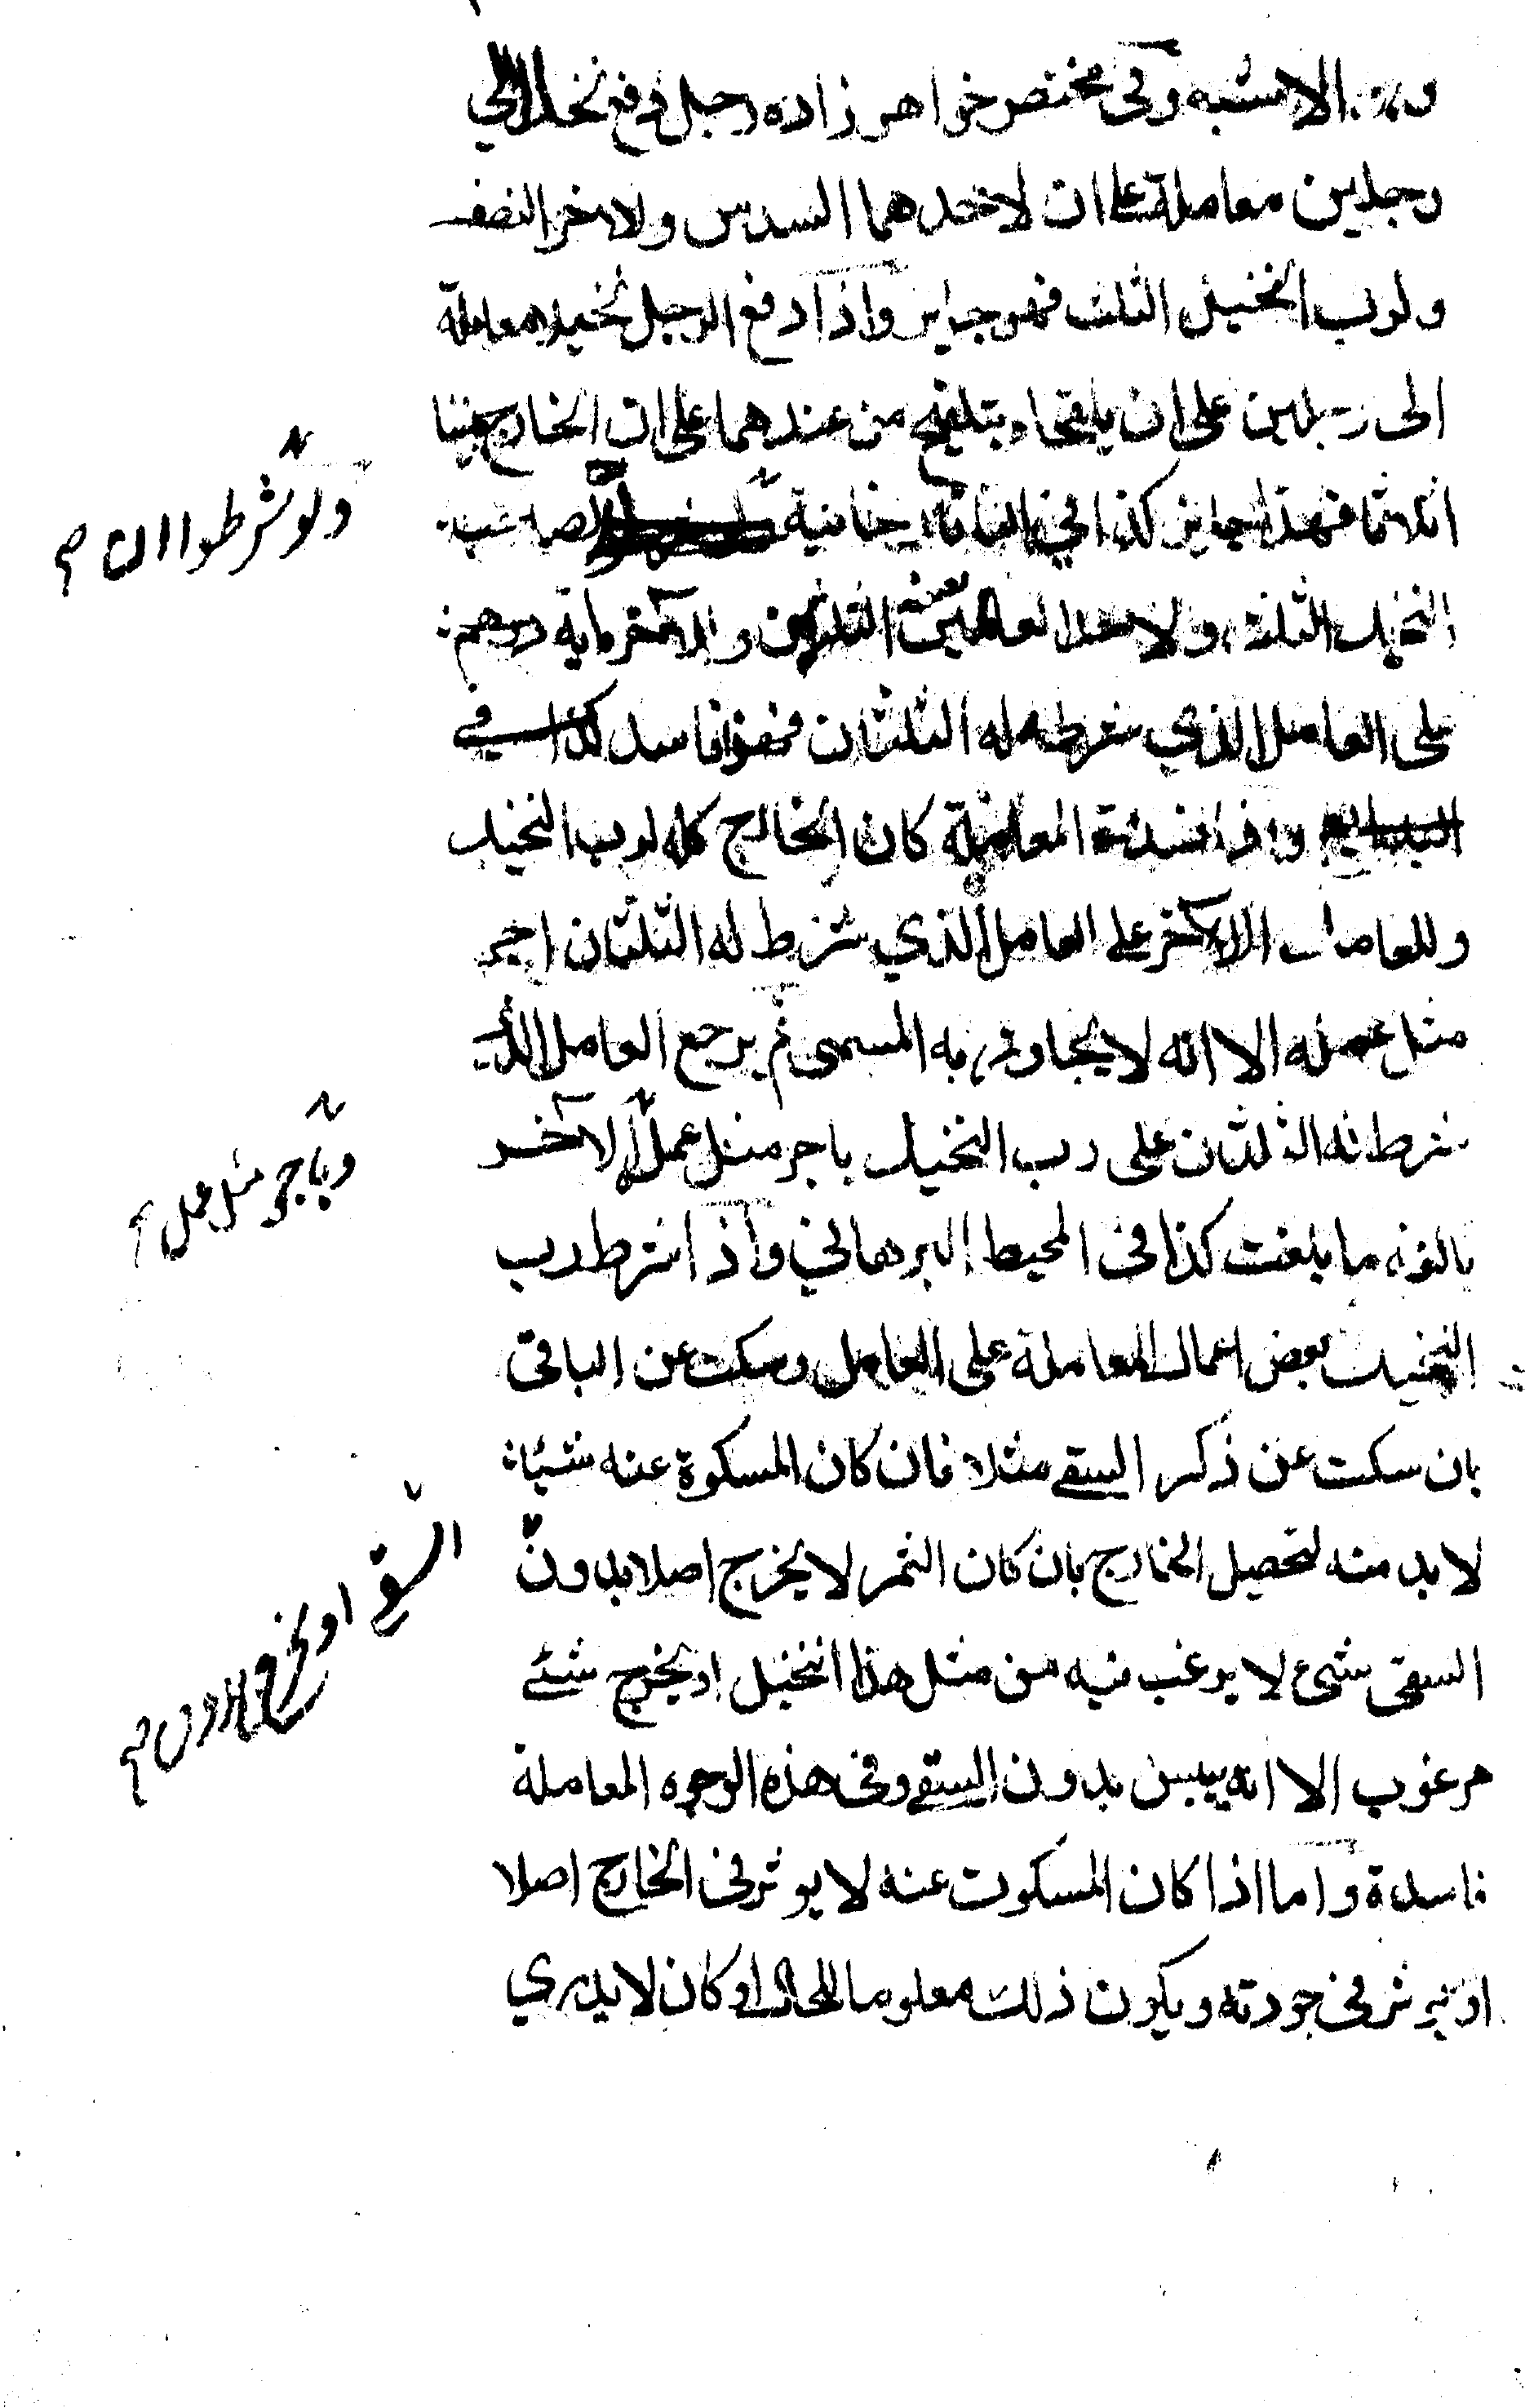 وهو الاشبه وفى مختصر خواهر زاده رجل دفع نخلا الى
رجلين معاملة على ان لاحدهما السدس وللاخر النصف
ولرب النخيل الثلث فهو جايز واذا دفع الرجل نخيلا معاملة
الى رجلين على ان يلقحاه بتلقيح من عندهما على ان الخارج بيننا
اثلاثا فهذا جايز كذا في التاتارخانية لصاحب
ولو شرطوا ان
النخيل الثلث ولاحد العاملين الثلثين وللآخر ماية درهم
على العامل الذي شرط له الثلثان فهو فاسد كذا في
البدايع واذا فسدت المعاملة كان الخارج كله لرب النخيل
وللعامل الآخر على العامل الذي شرط له الثلثان اجر
مثل عمله الا انه لا يجاوز به المسمى ثم يرجع العامل الذي
شرط له الثلثان على رب النخيل باجر مثل عمله الآخر
وباجر مثل عمل
بالغة ما بلغت كذا فى المحيط البرهاني واذا اشترط رب
النخيل بعض اعمال المعاملة على العامل وسكت عن الباقى
بان سكت عن ذكر السقي مثلا فان كان المسكوة عنه شيئا
لا بد منه لتحصيل الخارج بان كان الثمر لا يخرج اصلا بدون
السقي او يخرج بدون
السقى شئ لا يرغب فيه من مثل هذا النخيل او يخرج شئ
مرغوب الا انه ييبس بدون السقي وفى هذه الوجوه المعاملة
فاسدة واما اذا كان المسكوت عنه لا يوثر فى الخارج اصلا
او يوثر فى جودته ويكون ذلك معلوما للحال او كان لا يدري